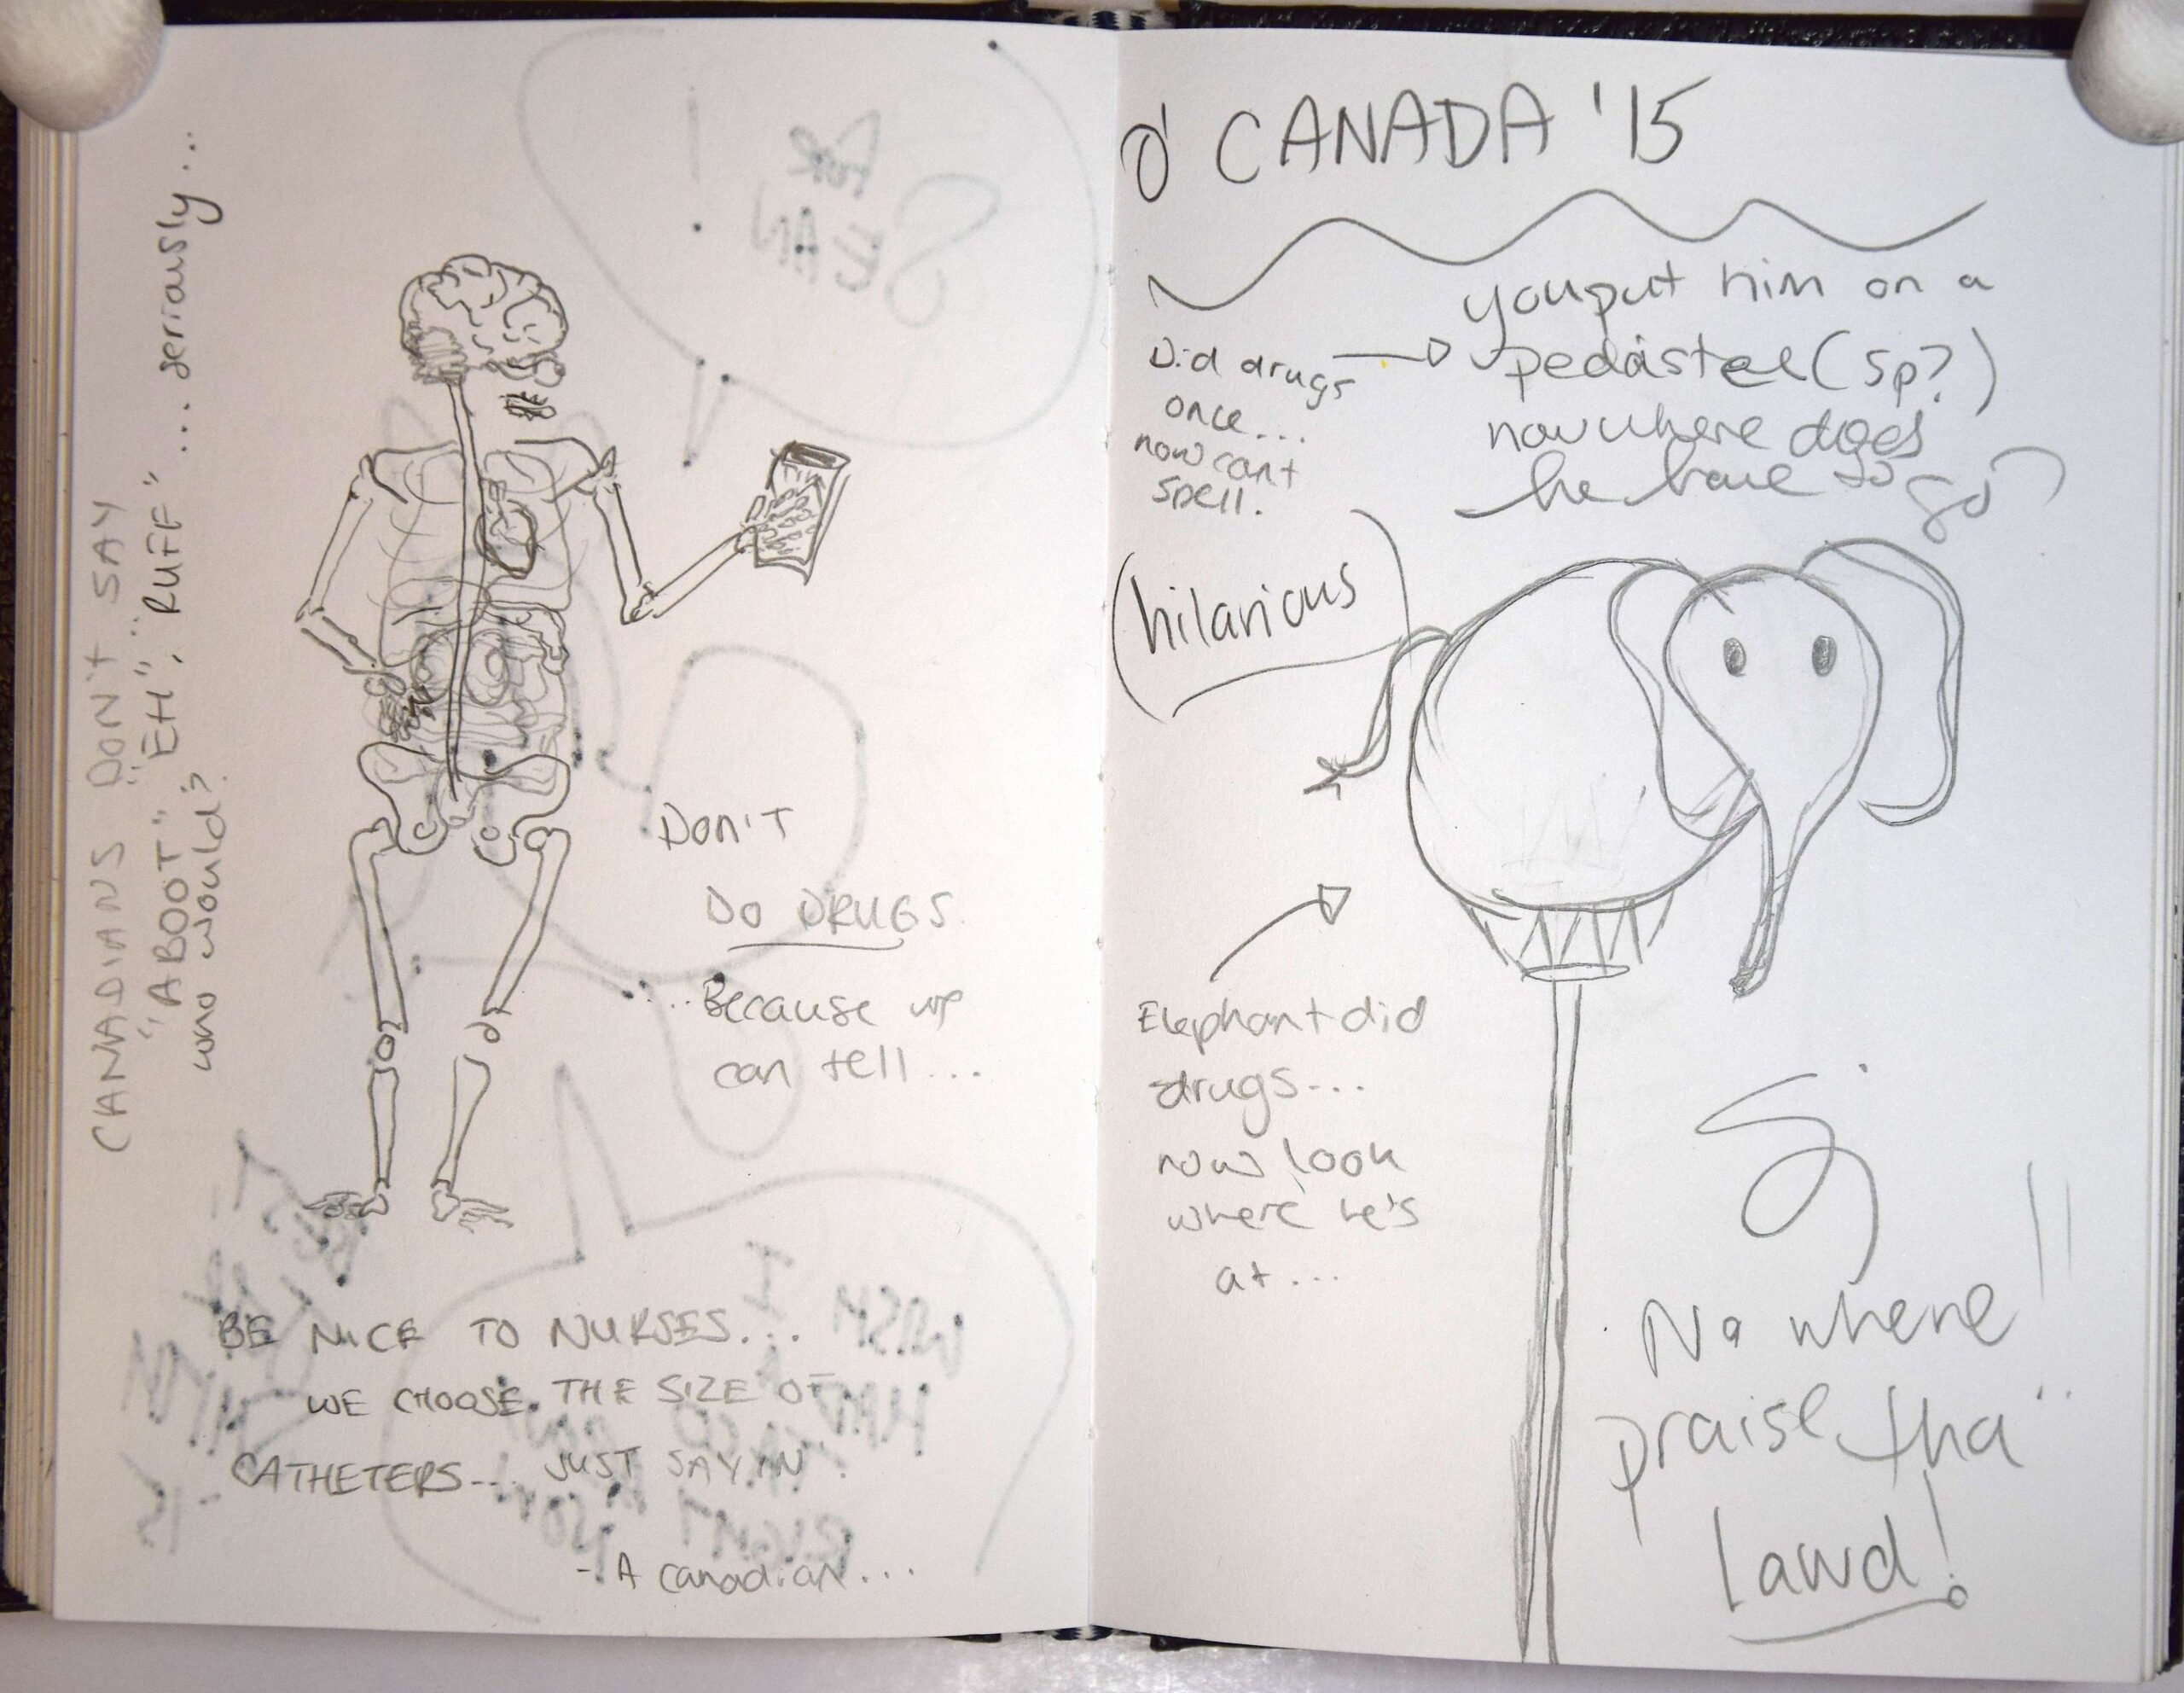 CANADIANS DON'T SAY
"ABOOT" "EH", "RUFF" .... seriously...
who would?
DON'T
DO DRUGS.
...Because we
can tell...
BE NICE TO NURSES...
WE CHOOSE THE SIZE OF
CATHETERS... JUST SAYIN'.
- A canadian...
O' CANADA '15
you put him on a
pedastel (sp?)
now where does
he have to go?
Did drugs
once...
now can't
spell.
(hilarious)
Elephant did
drugs...
now look
where he's
at...
No where!!
praise tha
lawd!
FOR
SEAN
!
I
WISH
HAD A
TACO
RIGHT NOW